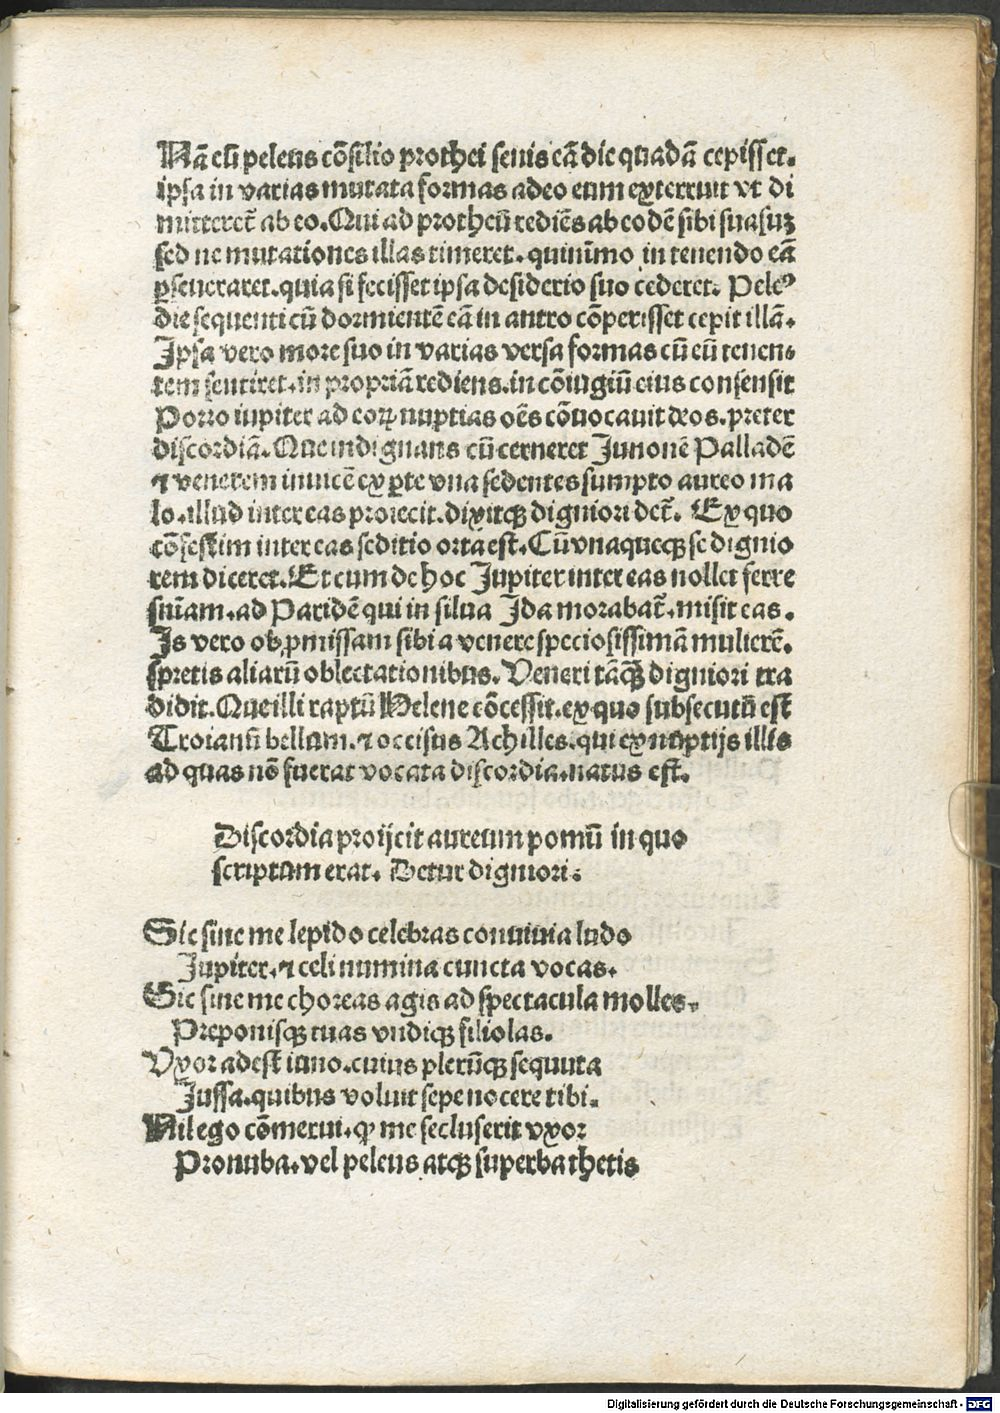 Nā cū peleus cōsilio prothei senis eā die quadā cepisset.
ipsa in varias mutata formas adeo eum exterruit vt di
mitteret̃ ab eo. Qui ad protheū rediēs ab eodē sibi suasuʒ
sed ne mutationes illas timeret. quinīmo in tenendo eā
ꝑseueraret. quia si fecisset ipsa desiderio suo cederet. Peleꝰ
die sequenti cū dormientē eā in antro cōperisset cepit illā.
Ipsa vero more suo in varias versa formas cū eū tenen⸗
tem sentiret. in propriā rediens. in cōiugiū eius consensit
Porro iupiter ad eoꝝ nuptias oēs cōuocauit deos. preter
discordiā. Que indignans cū cerneret Junonē Palladē
⁊ venerem inuicē ex ꝑte vna sedentes sumpto aureo ma
lo. illud inter eas proiecit. dixitqꝫ digniori det̃. Ex quo
cōfestim inter eas seditio orta est. Cū vnaqueqꝫ se dignio
rem diceret. Et cum de hoc Jupiter inter eas nollet ferre
sniam. ad Paridē qui in silua Ida morabat̃. misit eas.
Is vero ob ꝓmissam sibi a venere speciosissimā mulierē.
spretis aliarū oblectationibus. Veneri tāqꝫ digniori tra
didit. Que illi raptū Helene cōcessit. ex quo subsecutū est
Troianū bellum. ⁊ occisus Achilles. qui ex nuptijs illis
ad quas nō fuerat vocata discordia. natus est.
Discordia proijcit aureum pomū in quo
scriptum erat. Detur digniori.
Sic sine me lepido celebras conuiuia ludo
Jupiter. ⁊ celi numina cuncta vocas.
Sic sine me choreas agis ad spectacula molles.
Preponisqꝫ tuas vndiqꝫ filiolas.
Vxor adest iuno. cuius plerūqꝫ sequuta
Jussa. quibus voluit sepe nocere tibi.
Nil ego cōmerui. ꝙ me secluserit vxor
Pronuba. vel peleus atqꝫ superba thetis
Digitalisierung gefördert durch die Deutsche Forschungsgemeinschaft - DFG